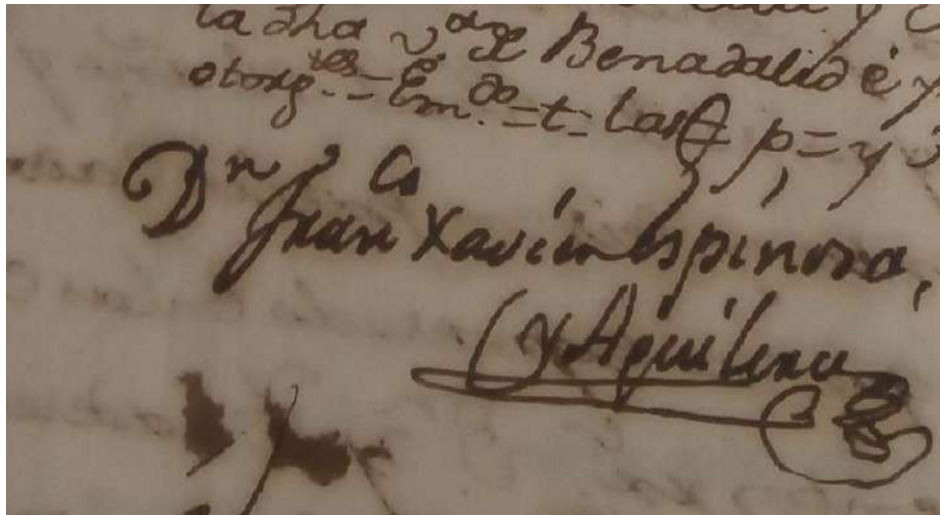 la dha v.ª de Benadalid é
otorg.tes = Em.do = t = las = p, = y
Dn Franco Xavier Espinosa,
y Aguilera